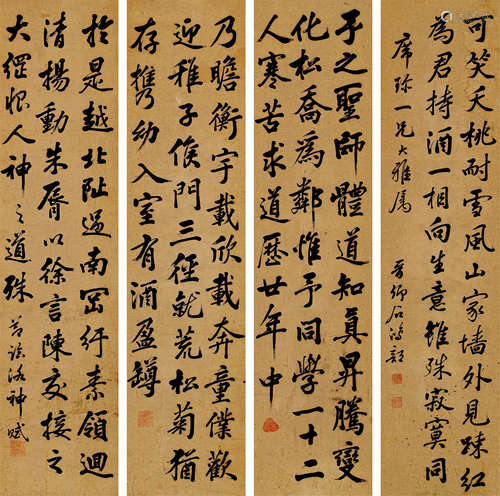 可笑夭桃耐雪風山家墙外見疎紅
為君持酒一相向生意雖殊寂寞同
席珍一兄大雅属
晋卿石鴻韶
子之聖師體道知真昇騰變
化松喬為鄰惟予同學一十二
人寒苦求道歷廿年中
乃瞻衡宇載欣載奔童僕歡
迎稚子候門三徑就荒松菊猶
存携幼入室有酒盈罇
於是越北沚過南岡紆素領迴
清揚動朱脣以徐言陳交接之
大綱恨人神之道殊
洛神賦